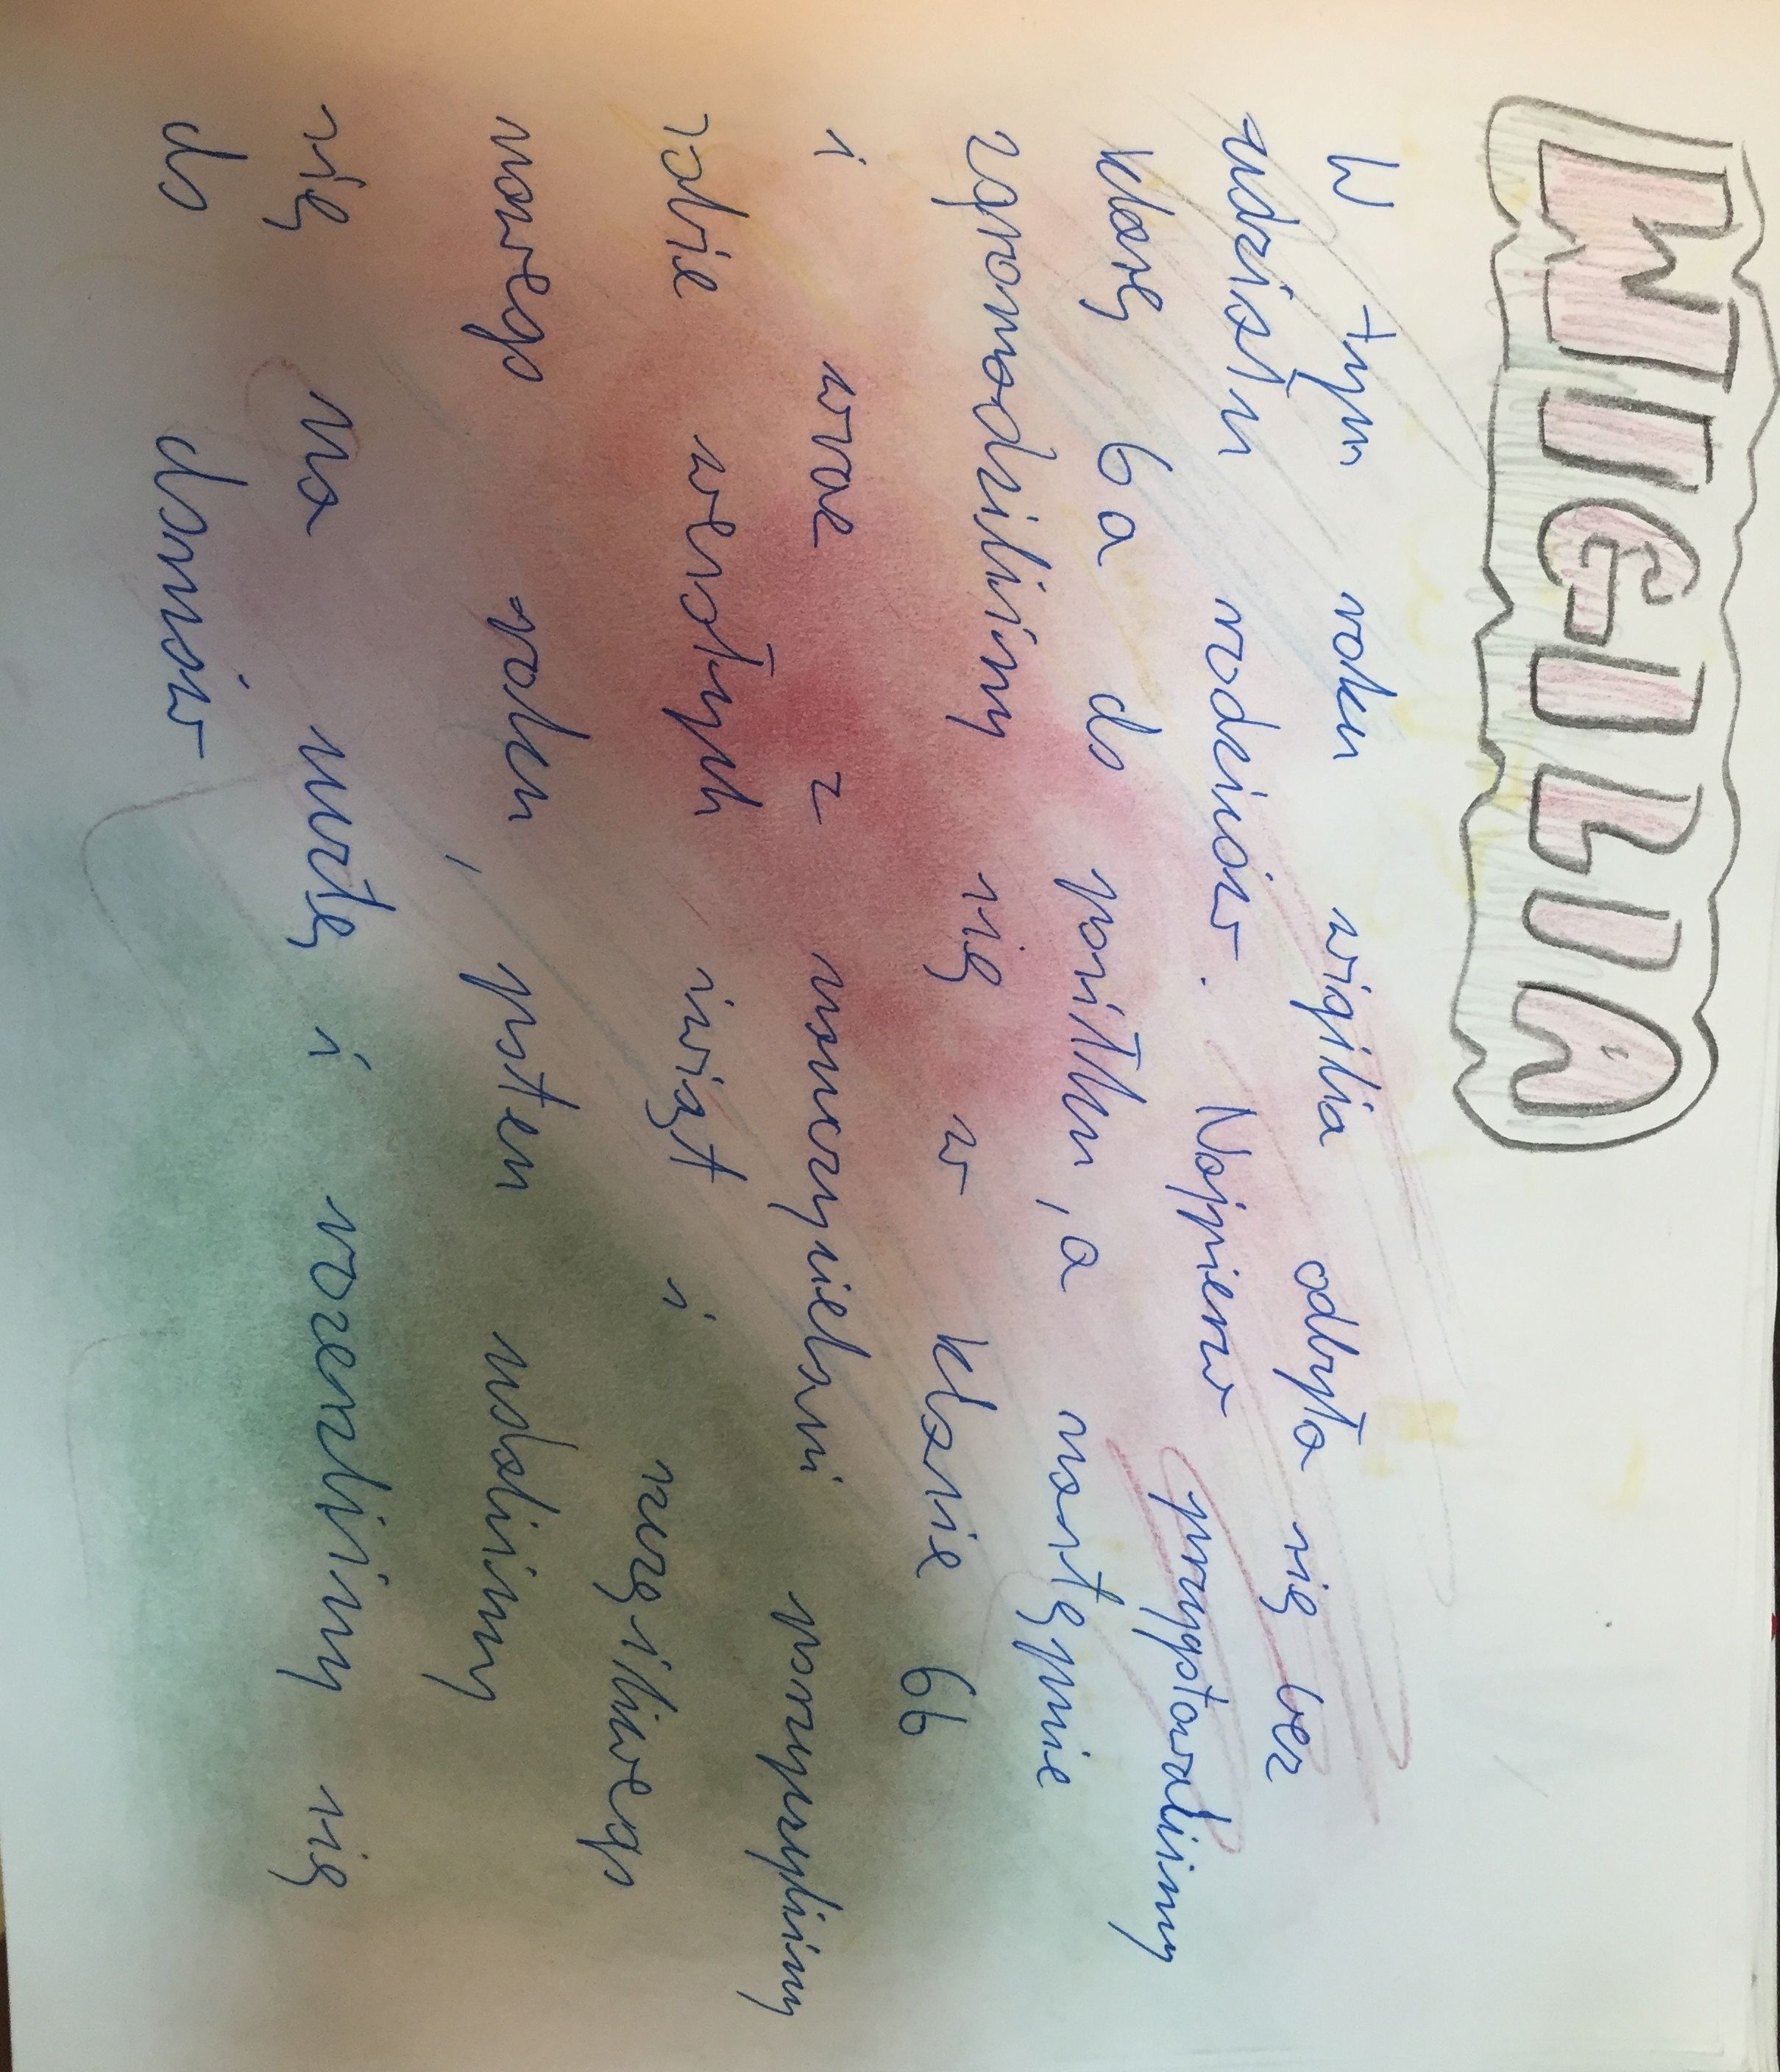 WIGILIA
W tym roku wigilia odbyła się bez
udziału rodziców. Najpierw przygotowaliśmy
klasę 6a do posiłku, a następnie
zgromadziliśmy się w klasie 6b
i wraz z nauczycielami poszyczyliśmy
sobie wesołych świąt i szczęśliwego
nowego roku, potem udaliśmy
się na mszę i rozeszliśmy się
do domów